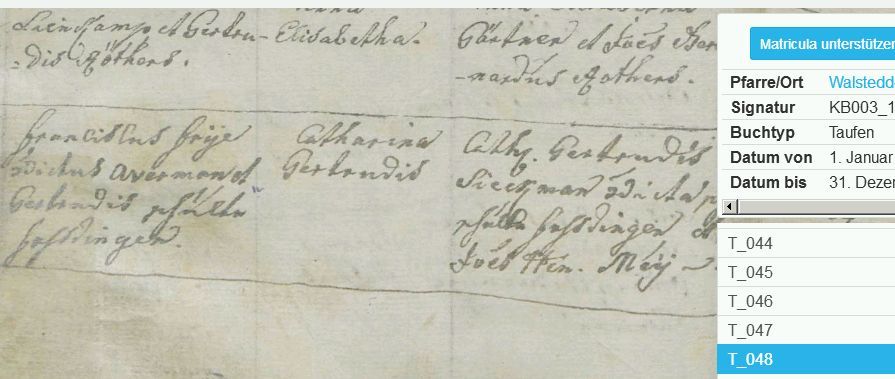 et Gertru-
-dis Rotherts.
Elisabetha.
Gärtner et Joës Ber
-nardus Rotherts.
Franciscus Frije
dictus Averman et
Gertrudis schulte
Catharina
Gertrudis
Cath. Gertrudis
dicta
schulte
Joës Hen. Meij
Matricula unterstützen
Pfarre/Ort Walstedde
Signatur KB003_1
Buchtyp Taufen
Datum von 1. Januar
Datum bis 31. Dezem
T_044
T_045
T_046
T_047
T_048